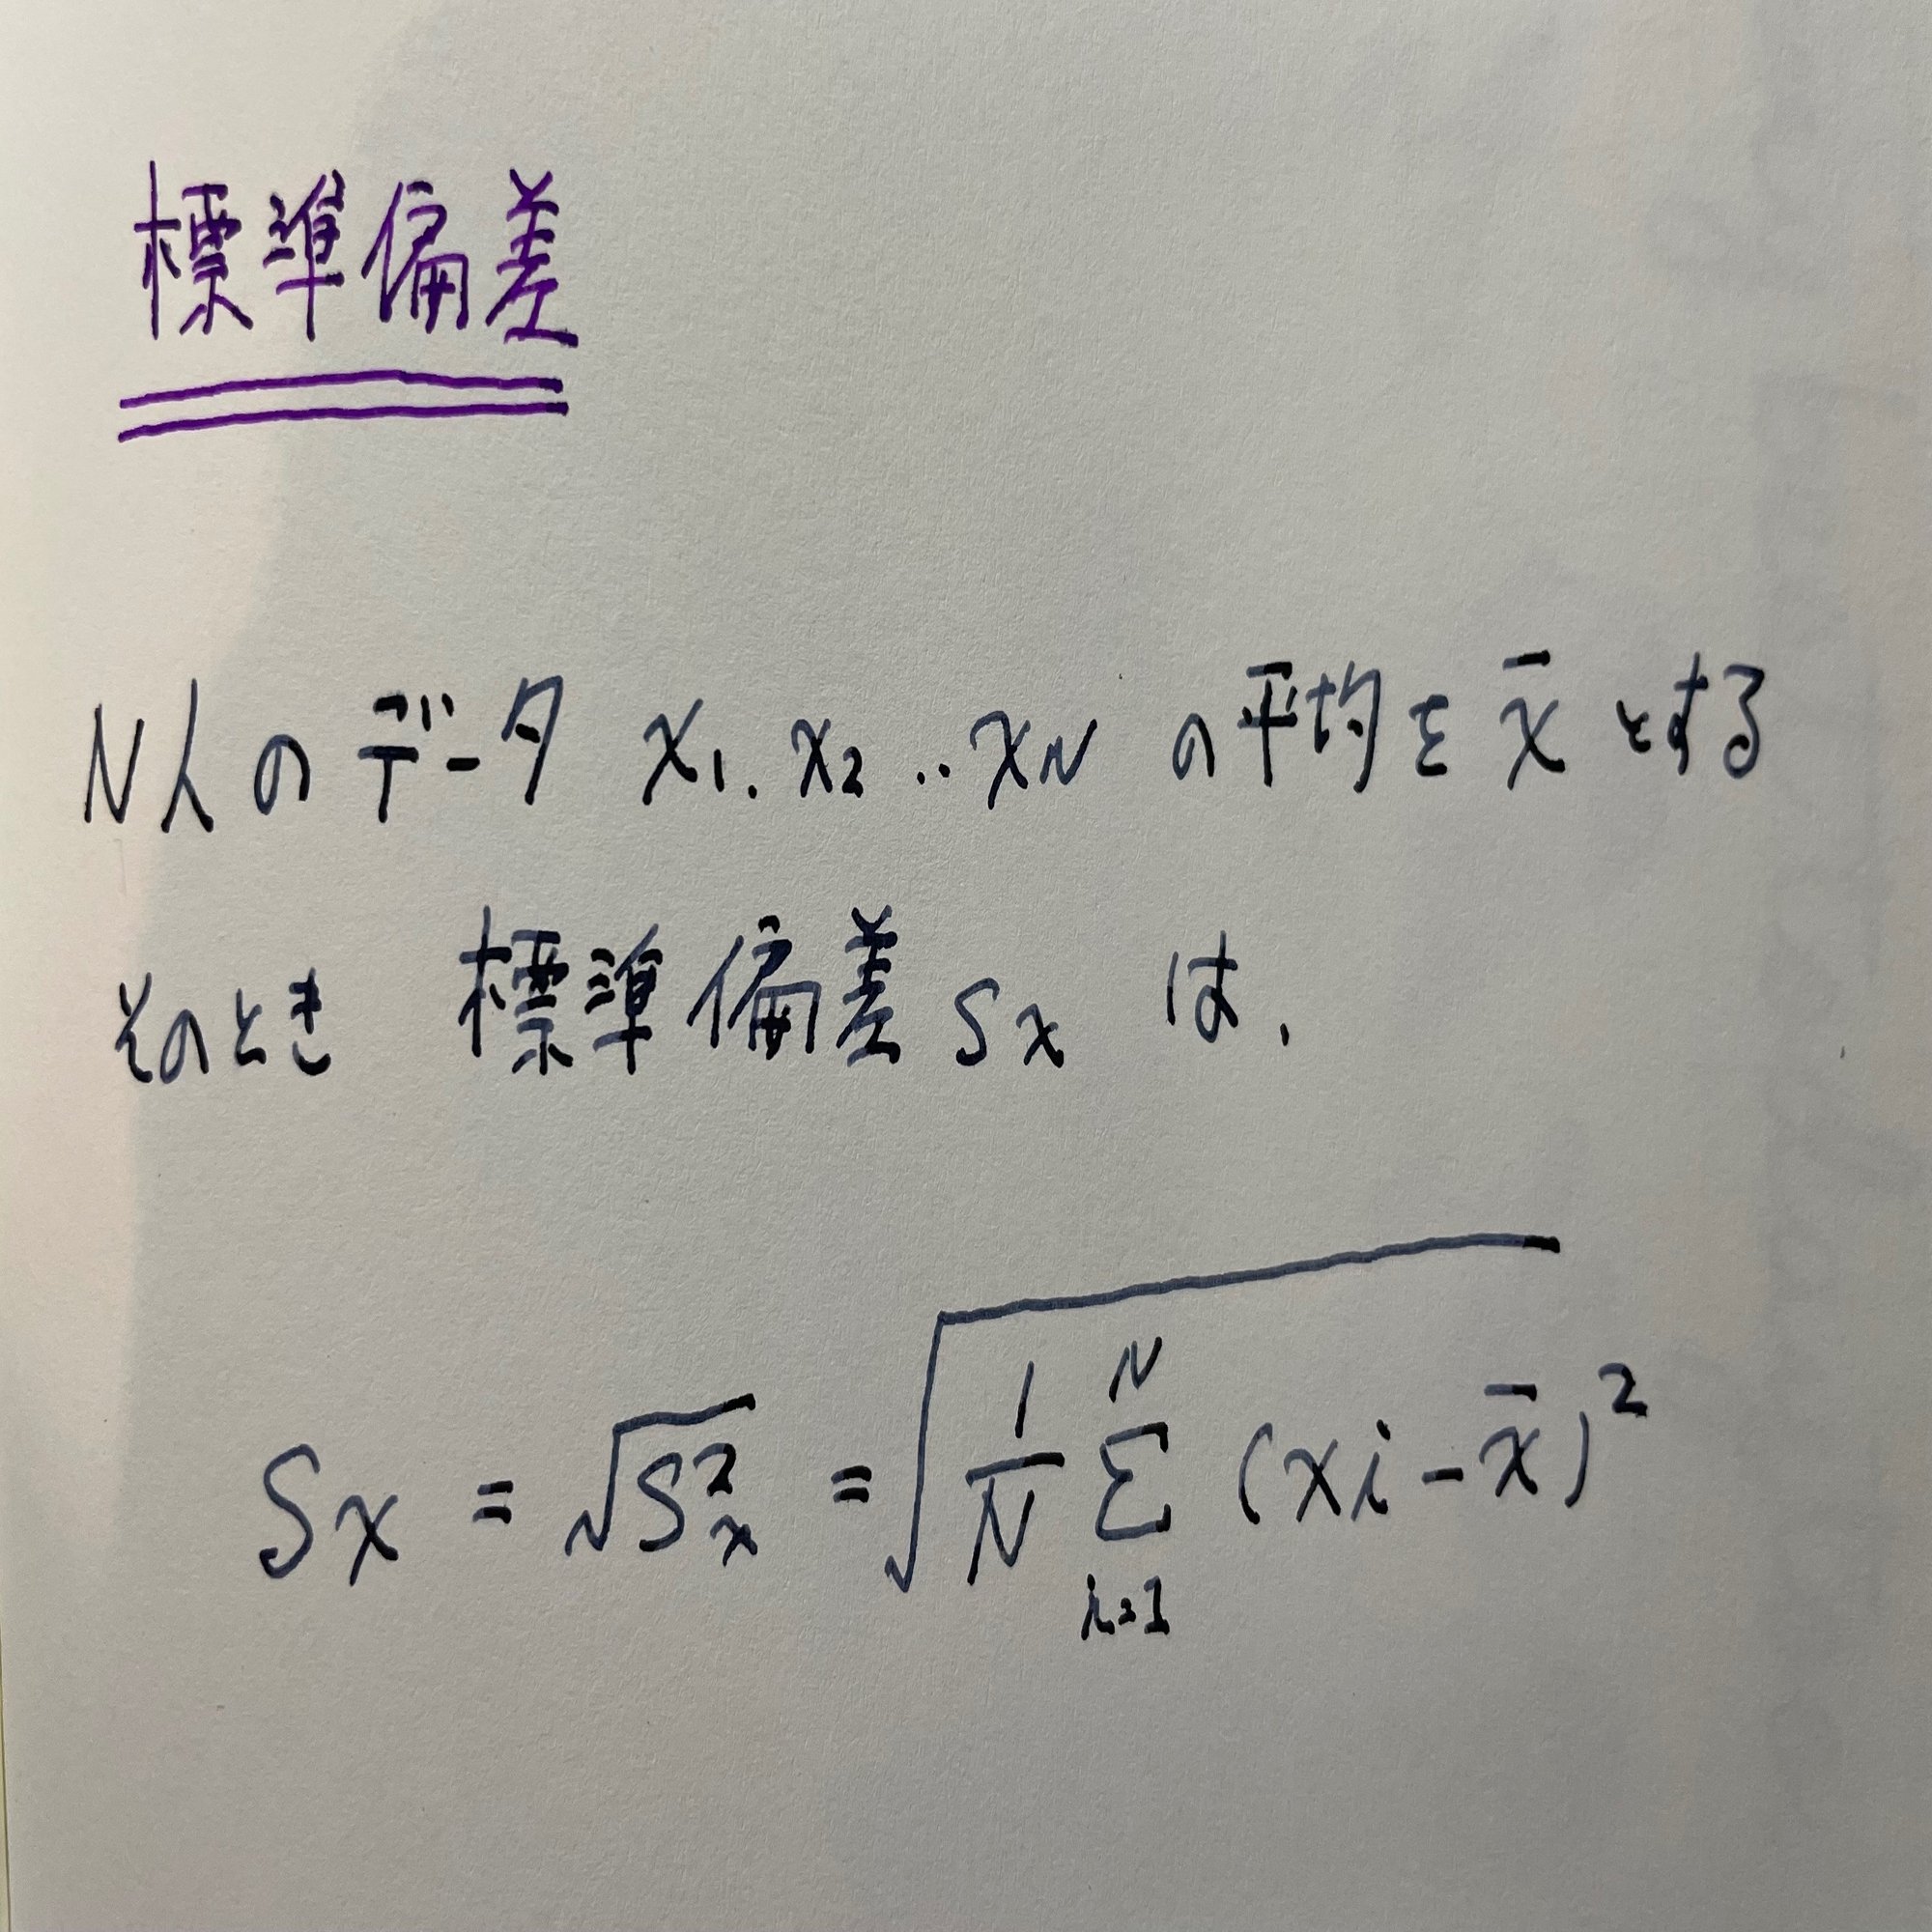 標準偏差
N人のデータ x₁. x₂ .. x_N の平均を x̄ とする
そのとき 標準偏差 Sx は、
Sx = √S²ₓ = √(1/N Σ_{i=1}^{N} (xi - x̄)²)